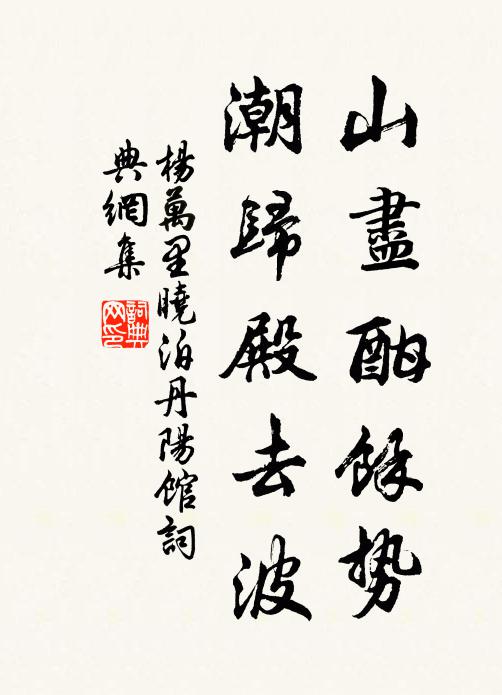 山盡酣餘勢
潮歸殿去波
楊萬里曉泊丹陽館詞
典網集
詞典
网印